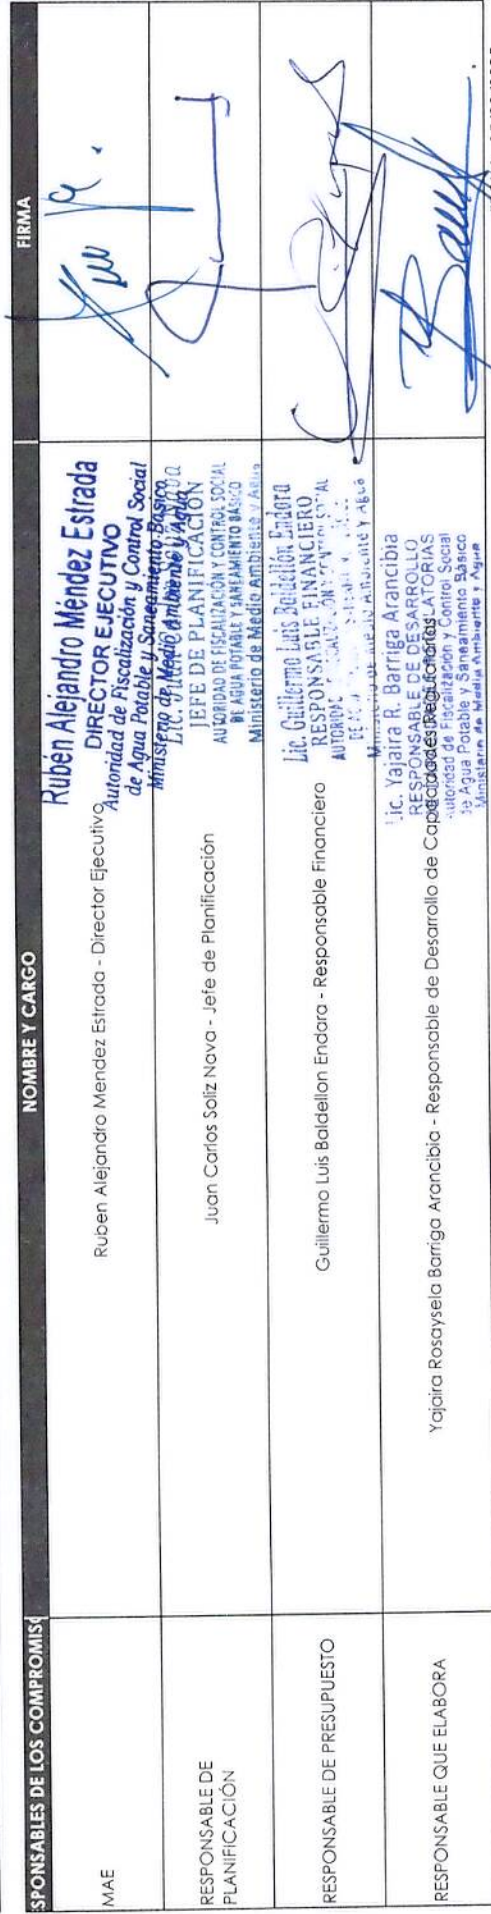 SPONSABLES DE LOS COMPROMISO
NOMBRE Y CARGO
FIRMA
MAE
Ruben Alejandro Mendez Estrada - Director Ejecutivo
Rubén Alejandro Méndez Estrada
DIRECTOR EJECUTIVO
Autoridad de Fiscalización y Control Social
de Agua Potable y Saneamiento Básico
Ministerio de Medio Ambiente y Agua
RESPONSABLE DE
PLANIFICACIÓN
Juan Carlos Soliz Nava - Jefe de Planificación
Lic.
JEFE DE PLANIFICACIÓN
AUTORIDAD DE FISCALIZACIÓN Y CONTROL SOCIAL
DE AGUA POTABLE Y SANEAMIENTO BÁSICO
Ministerio de Medio Ambiente y Agua
RESPONSABLE DE PRESUPUESTO
Guillermo Luis Baldellon Endara - Responsable Financiero
Lic. Guillermo Luis Baldellón Endara
RESPONSABLE FINANCIERO
Ministerio de Medio Ambiente y Agua
RESPONSABLE QUE ELABORA
Yajaira Rosaysela Barriga Arancibia - Responsable de Desarrollo de Capacidades Regulatorias
Lic. Yajaira R. Barriga Arancibia
RESPONSABLE DE DESARROLLO
REGULATORIAS
Autoridad de Fiscalización y Control Social
de Agua Potable y Saneamiento Básico
Ministerio de Medio Ambiente y Agua